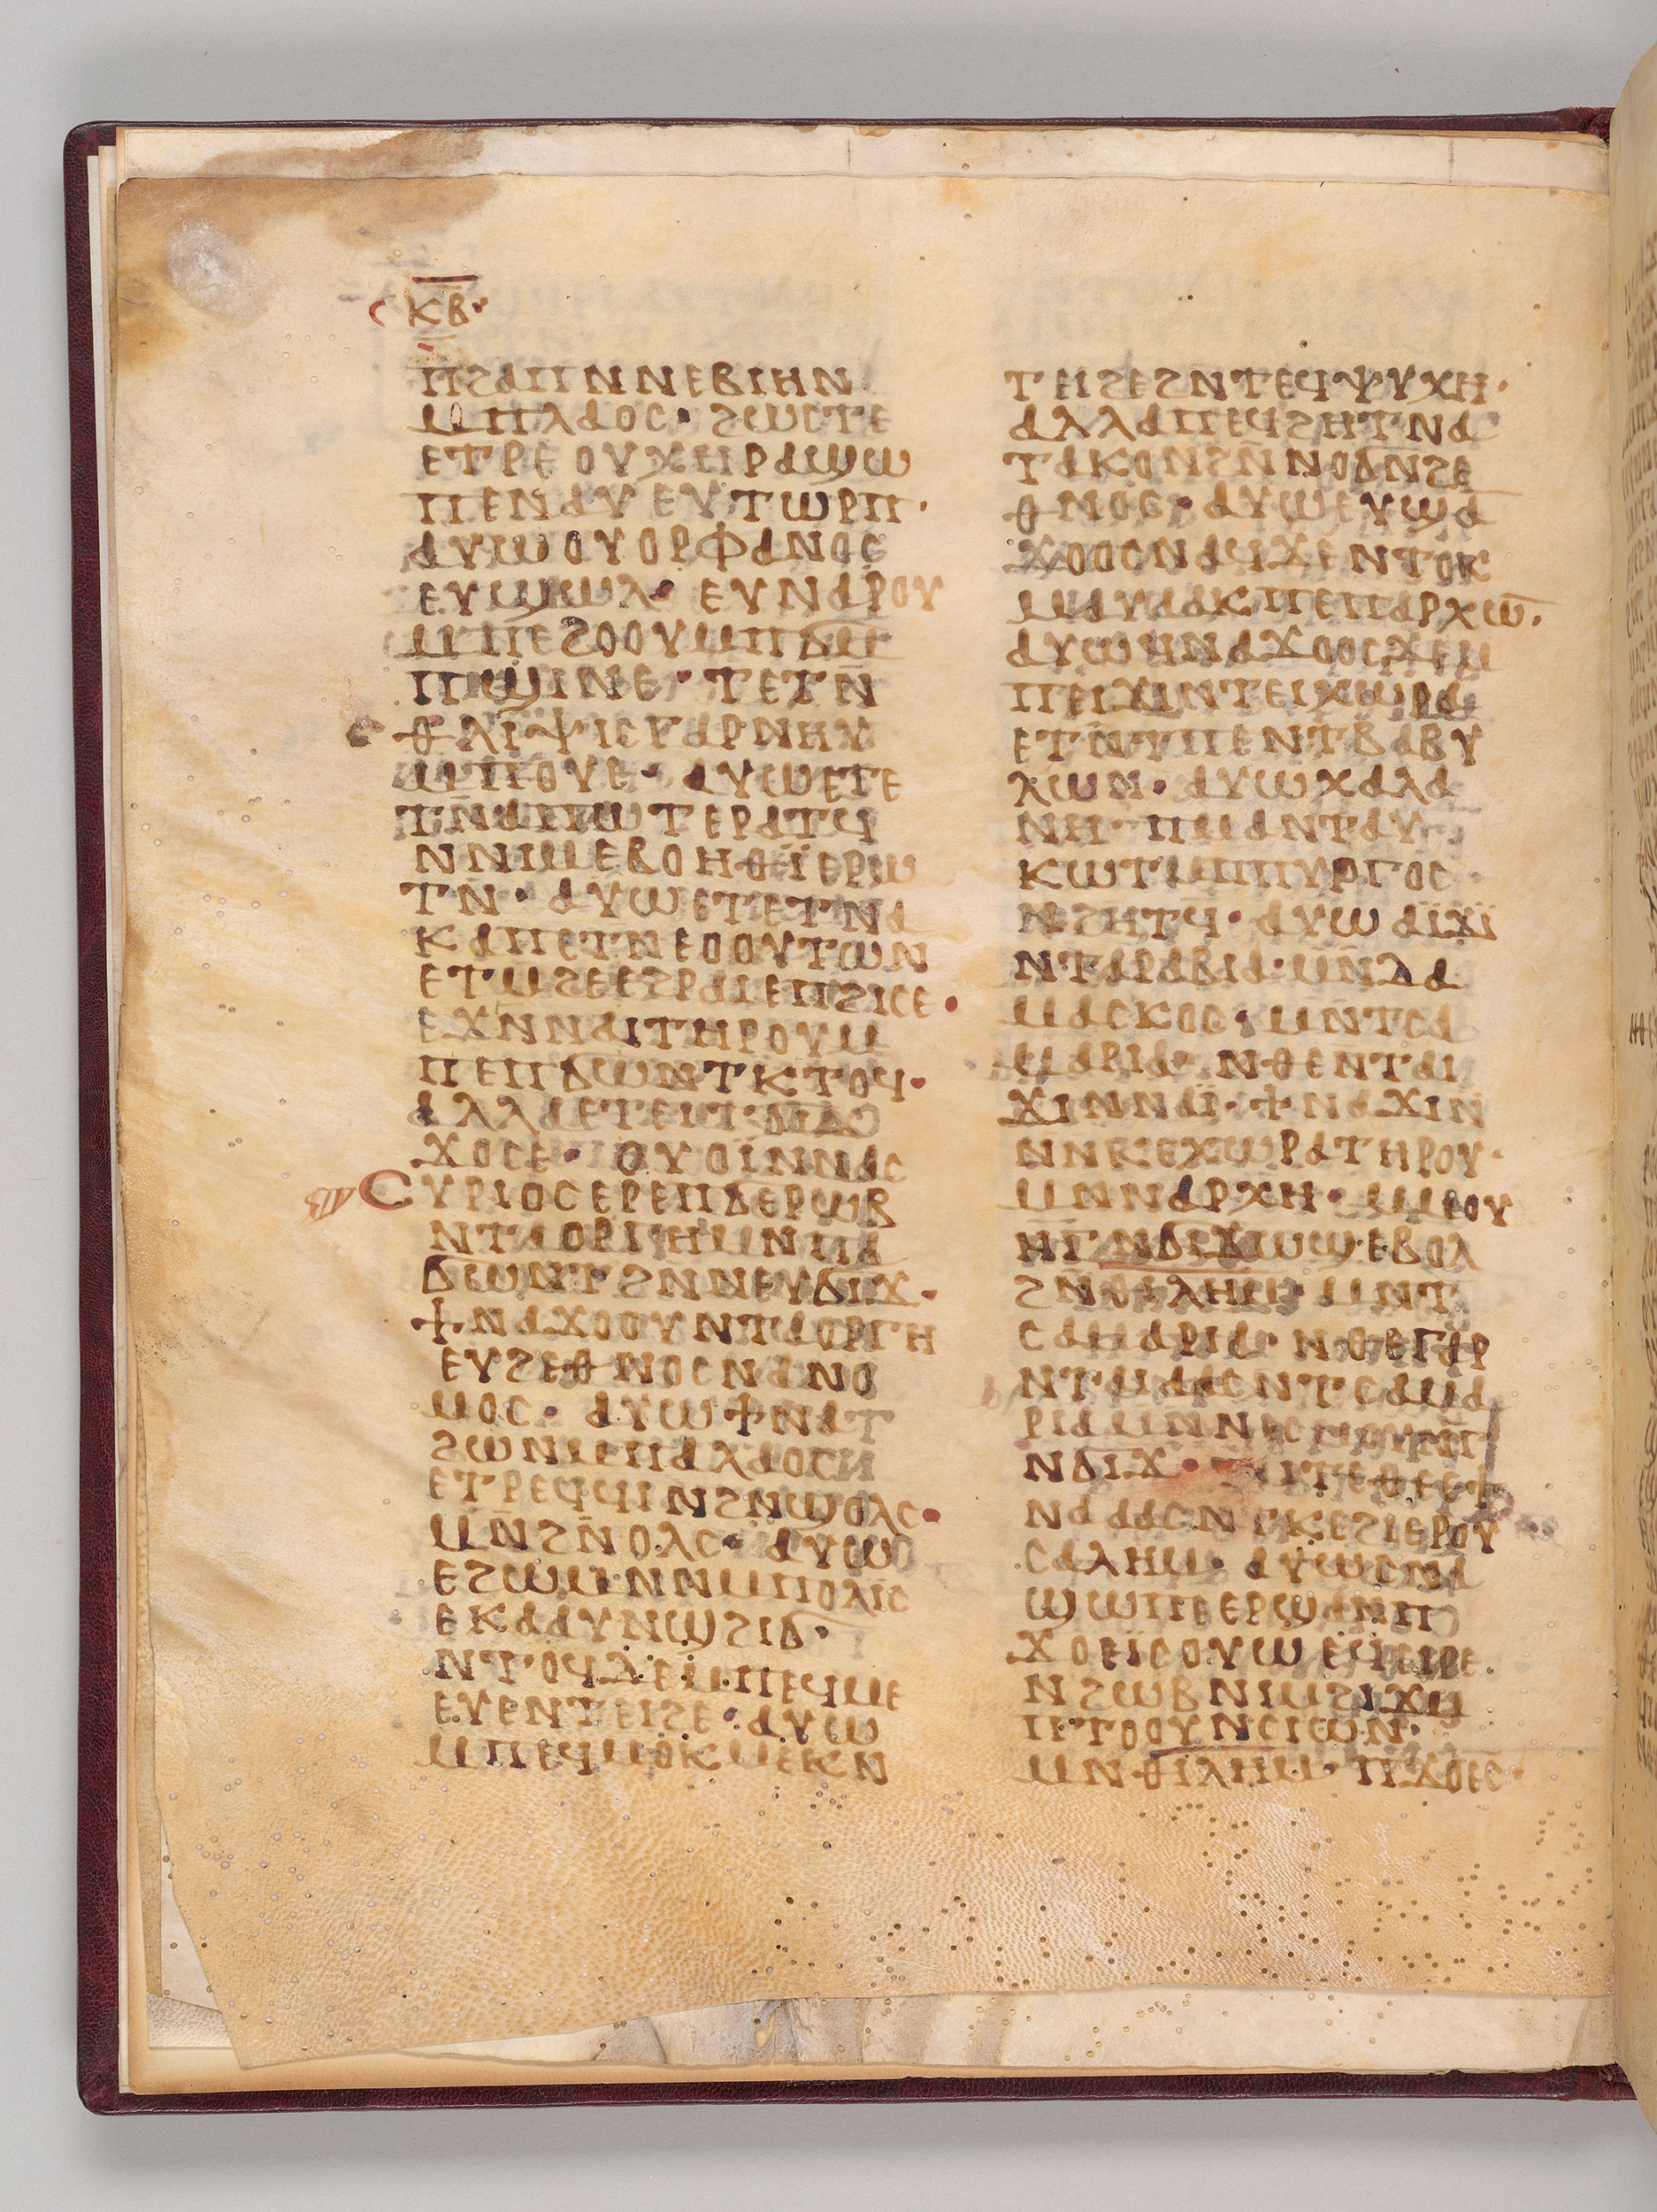 ⲕⲃ·
ⲡϩⲁⲡ ⲛⲛⲉⲃⲓⲏⲛ
ⲙⲡⲗⲁⲟⲥ· ϩⲱⲥⲧⲉ
ⲉⲧⲣⲉ ⲟⲩⲭⲏⲣⲁ ϣⲱ
ⲡⲉ ⲛⲁⲩ ⲉⲩⲧⲱⲣⲡ·
ⲁⲩⲱ ⲟⲩⲟⲣⲫⲁⲛⲟⲥ
ⲉⲩϣⲱⲗ· ⲉⲩⲛⲁⲣⲟⲩ
ⲙⲡⲉϩⲟⲟⲩ ⲙⲡϭⲙ
ⲡϣⲓⲛⲉ· ⲧⲉⲧⲛ̄
ⲑⲗⲓⲯⲓⲥ ⲅⲁⲣ ⲛⲏⲩ
ⲙⲡⲟⲩⲉ· ⲁⲩⲱ ⲉⲧⲉ
ⲧⲛ̄ⲁⲡⲱⲧ ⲉⲣⲁⲧϥ
ⲛⲛⲓⲙ ⲉⲃⲟⲏⲑⲓ̈ ⲉⲣⲱ
ⲧⲛ̄· ⲁⲩⲱ ⲉⲧⲉⲧⲛⲁ
ⲕⲁ ⲡⲉⲧⲛⲉⲟⲟⲩ ⲧⲱⲛ
ⲉⲧⲙϩⲉ ⲉϩⲣⲁⲓ ⲉⲡϩⲓⲥⲉ·
ⲉϫⲛ ⲛⲁⲓ ⲧⲏⲣⲟⲩ ⲙ
ⲡⲉⲡϭⲱⲛⲧ ⲕⲧⲟϥ·
ⲁⲗⲗⲁ ⲉⲧⲉⲓ ⲧϭⲓϫ
ϫⲟⲥⲉ· ⲟⲩⲟⲓ̈ ⲛⲛⲁⲥ
ⲥⲩⲣⲓⲟⲥ ⲉⲣⲉ ⲡϭⲉⲣⲱⲃ
ⲛⲧⲁⲟⲣⲅⲏ ⲙⲛ ⲡⲁ
ϭⲱⲛⲧ ϩⲛ ⲛⲉⲩϭⲓϫ·
ϯⲛⲁϫⲟⲟⲩ ⲛⲧⲁⲟⲣⲅⲏ
ⲉⲩϩⲉⲑⲛⲟⲥ ⲛⲁⲛⲟ
ⲙⲟⲥ· ⲁⲩⲱ ϯⲛⲁⲧ
ϩⲱⲛ ⲙⲡⲁⲗⲁⲟⲥ
ⲉⲧⲣⲉϥϥⲓ ⲛϩⲛϣⲟⲗⲥ·
ⲙⲛ̄ ϩⲛ̄ⲟⲗⲥ· ⲁⲩⲱ
ⲉϩⲱⲙ ⲛⲛⲙⲡⲟⲗⲓⲥ
ⲉⲕⲁⲁⲩ ⲛϣϩⲓϭ·
ⲛⲧⲟϥ ⲇⲉ ⲙⲡⲉϥⲙⲉ
ⲉⲩⲉ ⲛⲧⲉⲓϩⲉ· ⲁⲩⲱ
ⲙⲡⲉϥⲙⲟⲕⲙⲉⲕ ⲛ
ⲧⲉⲓϩⲉ ϩⲛ ⲧⲉϥⲯⲩⲭⲏ·
ⲁⲗⲗⲁ ⲡⲉϥϩⲏⲧ ⲛⲁ
ⲧⲁⲕⲟ ⲛϩⲛ̄ⲛⲟϭ ⲛϩⲉ
ⲑⲛⲟⲥ· ⲁⲩⲱ ⲉⲩϣⲁ
ϫⲟⲟⲥ ⲛⲁϥ ϫⲉ ⲛⲧⲟⲕ
ⲙⲁⲩⲁⲁⲕ ⲡⲉ ⲡⲁⲣⲭⲱ̄·
ⲁⲩⲱ ϥⲛⲁϫⲟⲟⲥ ϫⲉ ⲙ
ⲡⲉⲓϫⲓ ⲛⲧⲉⲓⲭⲱⲣⲁ
ⲉⲧⲛⲧⲡⲉ ⲛⲧⲃⲁⲃⲩ
ⲗⲱⲛ· ⲁⲩⲱ ⲭⲁⲗⲁ
ⲛⲏ· ⲡⲙⲁ ⲛⲧⲁⲩ
ⲕⲱⲧ ⲙⲡⲡⲩⲣⲅⲟⲥ
ⲛϩⲏⲧϥ· ⲁⲩⲱ ⲁⲓ̈ϫⲓ̈
ⲛⲧⲁⲣⲁⲃⲓⲁ· ⲙⲛ̄ ⲇⲁ
ⲙⲁⲥⲕⲟⲥ· ⲙⲛ ⲧⲥⲁ
ⲙⲁⲣⲓⲁ· ⲛⲑⲉ ⲛⲧⲁⲓ
ϫⲓ ⲛⲛⲁⲓ̈· ϯⲛⲁϫⲓ ⲛ
ⲛⲛⲕⲉⲭⲱⲣⲁ ⲧⲏⲣⲟⲩ·
ⲙⲛ ⲛⲁⲣⲭⲏ·
ⲱϣ ⲉⲃⲟⲗ
ϩⲛ ⲑⲓⲗⲏⲙ· ⲙⲛ ⲧ
ⲥⲁⲙⲁⲣⲓⲁ· ⲛⲑⲉ ⲅⲁⲣ
ⲛⲧⲁⲓⲁⲁⲥ ⲛⲧⲥⲁⲙⲁ
ⲣⲓⲁ ⲙⲛ ⲛⲉⲥⲙⲟⲩⲛⲅ
ⲛϭⲓϫ· ⲧⲉⲑⲉ ϯ
ⲛⲁⲁⲁⲥ ⲛⲧⲕⲉϩⲓⲉⲣⲟⲩ
ⲥⲁⲗⲏⲙ· ⲁⲩⲱ ⲥⲛⲁ
ϣⲱⲡⲉ ⲉⲣϣⲁⲛ ⲡ
ϫⲟⲉⲓⲥ ⲟⲩⲱ ⲉϥⲉⲓⲣⲉ
ⲛϩⲱⲃ ⲛⲓⲙ ϩⲓϫⲙ
ⲡⲧⲟⲟⲩ ⲛⲥⲓⲱⲛ·
ⲙⲛ ⲑⲓⲗⲏⲙ· ⲡϫⲟⲉⲓⲥ·